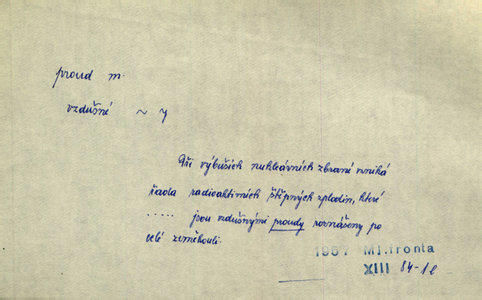 proud m.
vzdušné ~ y
Při výbuších nukleárních zbraní vzniká
řada radioaktivních štěpných zplodin, které
..... jsou vzdušnými proudy roznášeny po
celé zeměkouli.
1957 Ml.fronta
XIII 84-1c